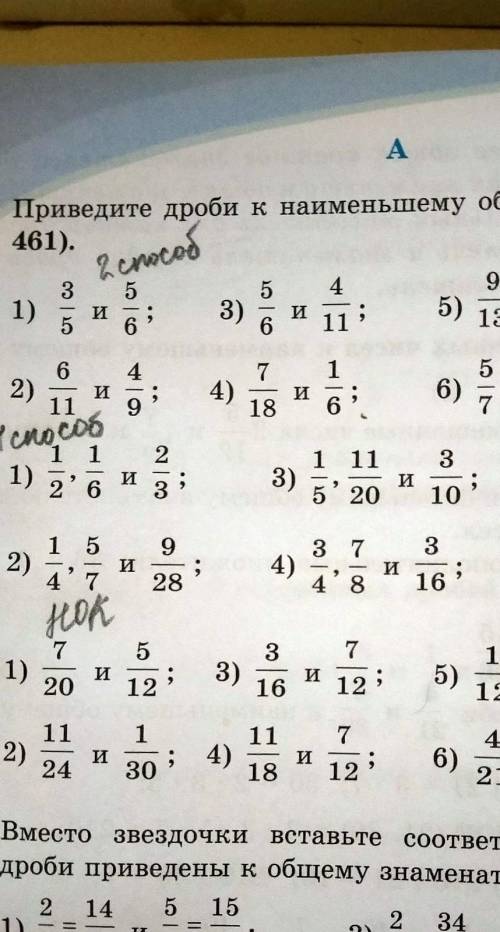 А
Приведите дроби к наименьшему об
461).
2 способ
1) 3/5 и 5/6; 3) 5/6 и 4/11; 5) 9/13
2) 6/11 и 4/9; 4) 7/18 и 1/6; 6) 5/7
способ
1) 1/2, 1/6 и 2/3; 3) 1/5, 11/20 и 3/10;
2) 1/4, 5/7 и 9/28; 4) 3/4, 7/8 и 3/16;
НОК
1) 7/20 и 5/12; 3) 3/16 и 7/12; 5) 1/12
2) 11/24 и 1/30; 4) 11/18 и 7/12; 6) 4/21
Вместо звездочки вставьте соответ
дроби приведены к общему знаменат
1) 2 = 14 и 5 = 15; 2 34